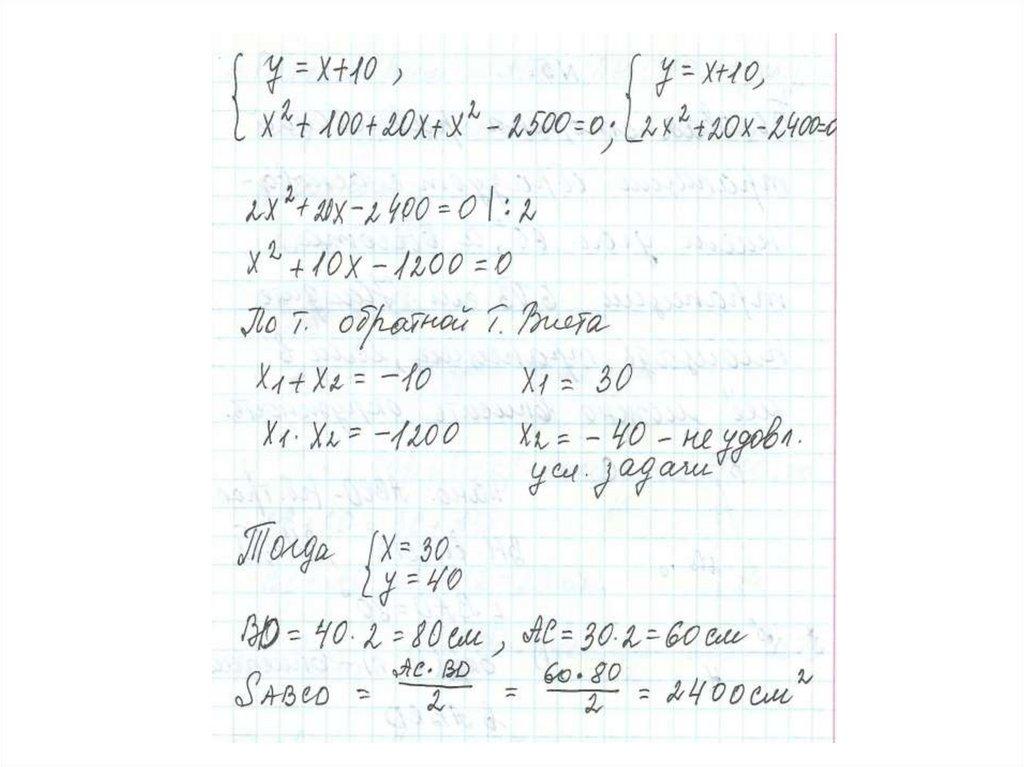 y = x+10 , y = x+10,
x² + 100+20x+x² - 2500=0; 2x²+20x-2400=0
2x²+20x-2400=0 | :2
x² +10x -1200=0
По т. обратной т. Виета
x1+x2 = -10 x1 = 30
x1·x2 = -1200 x2 = -40 - не удовл.
усл. задачи
Тогда x=30
y=40
BD = 40·2=80см , AC=30·2=60см
SABCD = AC·BD/2 = 60·80/2 = 2400см²